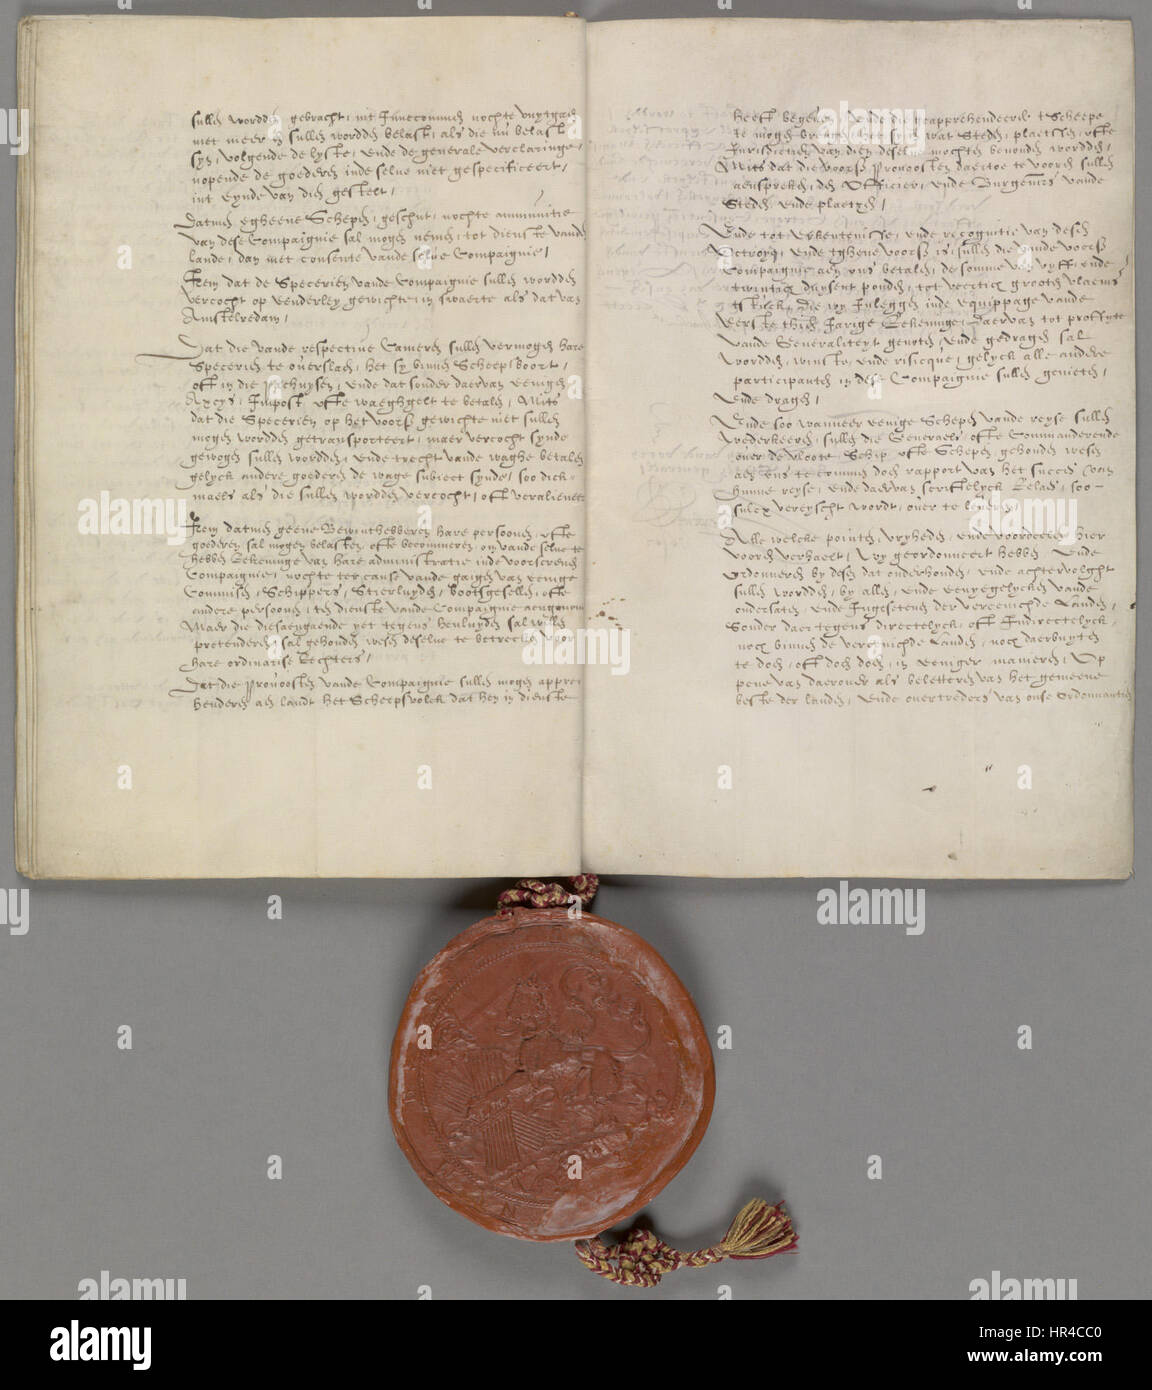 sullen wordden gebracht, int Innecommen nochte vuytgaen
met meer en sullen wordden belast, als die nu belast
syn, volgende de lyste, ende de generale verclaringe,
nopende de goederen inde selve niet gespecificeert,
int eynde van dien gestelt,
Datmen egheene Schepen, geschut, nochte ammunitie
van dese Compaignie sal mogen nemen, tot dienste vanden
lande, dan met consente vande selve Compaignie,
Item dat de Specerien vande Compaignie sullen wordden
vercocht op eenderley gewichte, in swaerte als dat van
Amstelredam,
Dat die vande respective Cameren sullen vermogen hare
Specerien te overslaen, het sy binnen Scheep boort,
oft in die Pachuysen, ende dat sonder daervan eenigen
Axcys, Impost, ofte waeghgelt te betalen, Mits
dat die Specerien op het voors gewichte niet sullen
mogen wordden getransporteert, maer vercocht synde
gewogen sullen wordden, ende trecht vande waghe betalen
gelyck andere goederen de wage subiect synde, soo dick-
maels als die sullen wordden vercocht, oft veralieneert
Item datmen geene Bewinthebberen hare persoonen, ofte
goederen sal mogen belasten, ofte becommeren, om vande selve te
hebben Rekeninge van hare administratie inde voorscreven
Compaignie, nochte ter cause vande gaigen van eenige
Commisen, Schippers, Stierluyden, Bootsgesellen, ofte
andere persoonen, ten dienste vande Compaignie aengenomen
Maer die diesaengaende yet tegens henluyden sal willen
pretenderen, sal gehouden wesen deselve te betrecken voor
hare ordinarise Rechters,
Dat die Provoosten vande Compaignie sullen mogen appre-
henderen aen landt het Scheepsvolck dat hen in dienste
heeft begeven, ende die geapprehendeerde t Scheepe
te mogen brengen, het sy in wat Steden, plaetsen, ofte
Jurisdictien van dien deselve mochten bevonden wordden,
Mits dat die voors Provoosten daertoe te voren sullen
aenspreken, den Officier, ende Burgemrs vande
Steden ende plaetsen,
Ende tot erkentenisse, ende recognitie van desen
Octroye, ende tghene voors is, sullen die vande voors
Compaignie aen ons betalen, de somme van vyff, ende
twintich duysent ponden, tot veertich grooten vlaems
tstuck, Die wy Inleggen inde equippage vande
eerste thien Jarige Rekeninge, Daervan tot proffyte
vande Generaliteyt genoten, ende gedragen sal
wordden, winste, ende risicque, gelyck alle andere
participanten in dese Compaignie sullen genieten,
ende dragen,
Ende soo wanneer eenige Schepen vande reyse sullen
wederkeeren, sullen die Generaels ofte Commanderende
over de vloote, Schip ofte Schepen, gehouden wesen
aen ons te commen doen rapport van het succes van
hunne reyse, ende daervan scriftelyck Relaes, soo-
sulcx vereyscht wordt, over te leveren,
Alle welcke pointen, vryheden, ende voordeelen hier
vooren verhaelt, Wy geordonneert hebben ende
ordonneren by desen dat onderhouden, ende achtervolght
sullen wordden, by allen, ende eenyegelycken vande
ondersaten, ende Ingesetenen der vereenichde Landen,
Sonder daer tegens directelyck, oft Indirectelyck,
noch binnen de vereenichde Landen, noch daerbuyten
te doen, oft doen doen, in eeniger manieren, Op
pene van daerover als beletteren van het gemeene
beste der landen, ende overtreders van onse ordonnantien